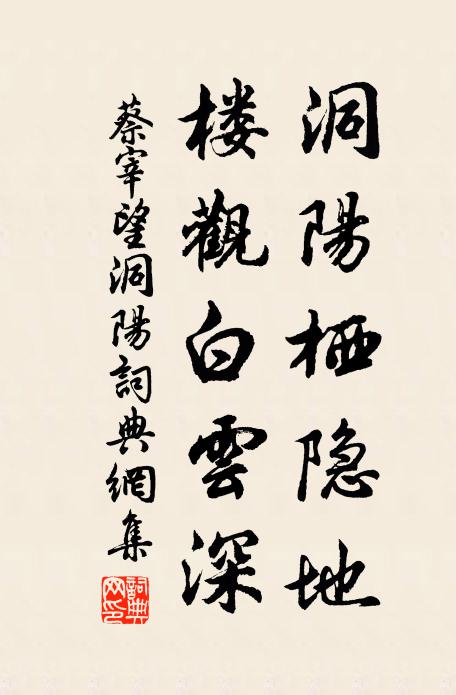 洞陽栖隐地
楼觀白雲深
蔡宰望洞陽詞典網集
詞典网印